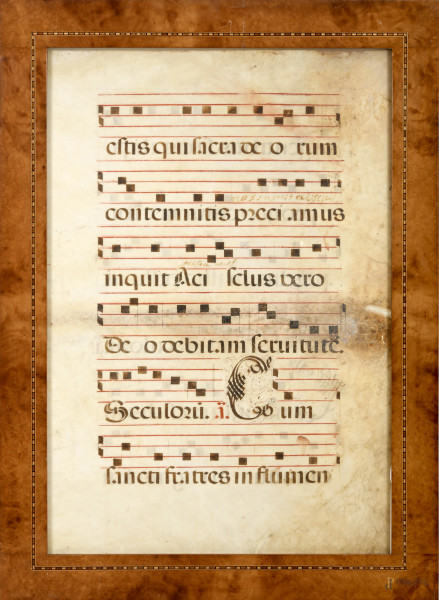 estis qui sacra de o rum
contemnitis preci amus
inquit Aci sclus vero
De o debitam seruitutē.
Seculorū. ā. Cō um
sancti fratres in flumen